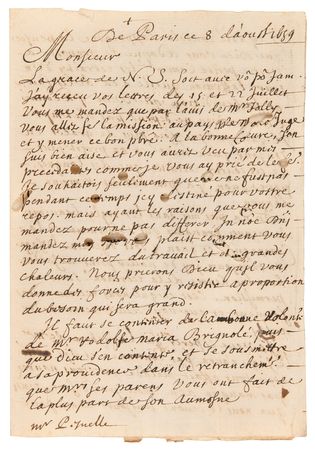 De Paris ce 8 d'aoust 1659
Monsieur
La grace de N. S. soit avec vo' po' jam.
J'ay receu vos lettres de 15 et 22 Juillet
Vous me mandez que par l'avis de Mr Jolly
vous alliez fe la mission au pays de Juge
et y mener ce bon pbre. A la bonne heure, J'en
suis bien aise et vous aurez veu par mes
precedantes comme je vous ay prié de le fe.
Je souhaitois seulement que ce ne fust pas
pendant ce temps icy destiné pour vostre
repos. mais ayant les raisons que vous me
mandez pour ne pas differer. In no'e D'ni
mandez moy plaist comment vous
vous trouverez du travail et grandes
chaleurs. Nous prierons Dieu qu'il vous
donne des forces pour y résister a proportion
du besoin qui sera grand.
Il faut se contenter de la bonne volonté
de Mr Rodolfe Maria Brignole, puis
que Dieu s'en contente, et se soumettre
a sa providence dans le retranchemt
que Mrs ses parens vous ont fait de
la plus part de son aumosne
Mr